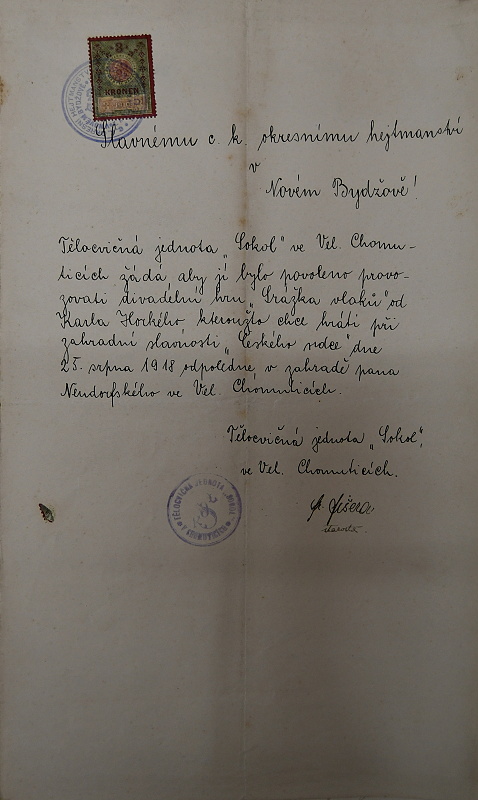 3
KRONEN
Slavnému c. k. okresnímu hejtmanství
v
Novém Bydžově!
Tělocvičná jednota „Sokol" ve Vel. Chomu-
ticích žádá, aby jí bylo povoleno provo-
zovati divadelní hru „Srážka vlaků" od
Karla Horkého, kteroužto chce hráti při
zahradní slavnosti „Českého srdce" dne
25. srpna 1918 odpoledne v zahradě pana
Neudorfského ve Vel. Chomuticích.
Tělocvičná jednota „Sokol",
ve Vel. Chomuticích.
TĚLOCVIČNÁ JEDNOTA „SOKOL"
V CHOMUTICÍCH
Fišera
starosta